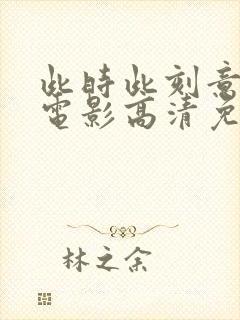 此時此刻意
電影高清免
林之余